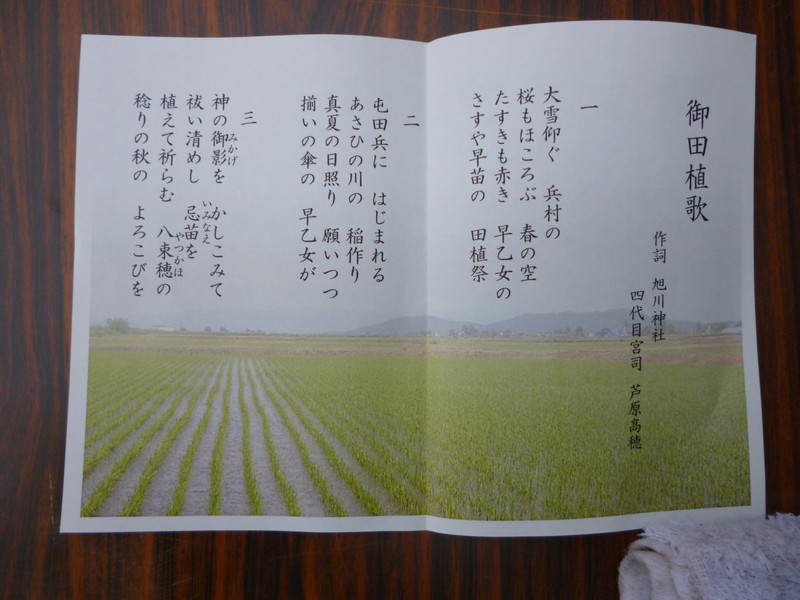 御田植歌
作詞　旭川神社
四代目宮司　芦原高穂
一
大雪仰ぐ　兵村の
桜もほころぶ　春の空
たすきも赤き　早乙女の
さすや早苗の　田植祭
二
屯田兵に　はじまれる
あさひの川の　稲作り
真夏の日照り　願いつつ
揃いの傘の　早乙女が
三
神の御影を　かしこみて
みかげ
祓い清めし　忌苗を
いみなえ
植えて祈らむ　八束穂の
やつかほ
稔りの秋の　よろこびを